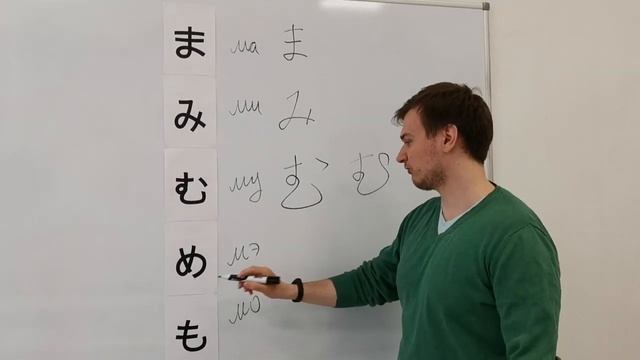 ま ма ま
み ми み
む му む む
め мэ
も мо